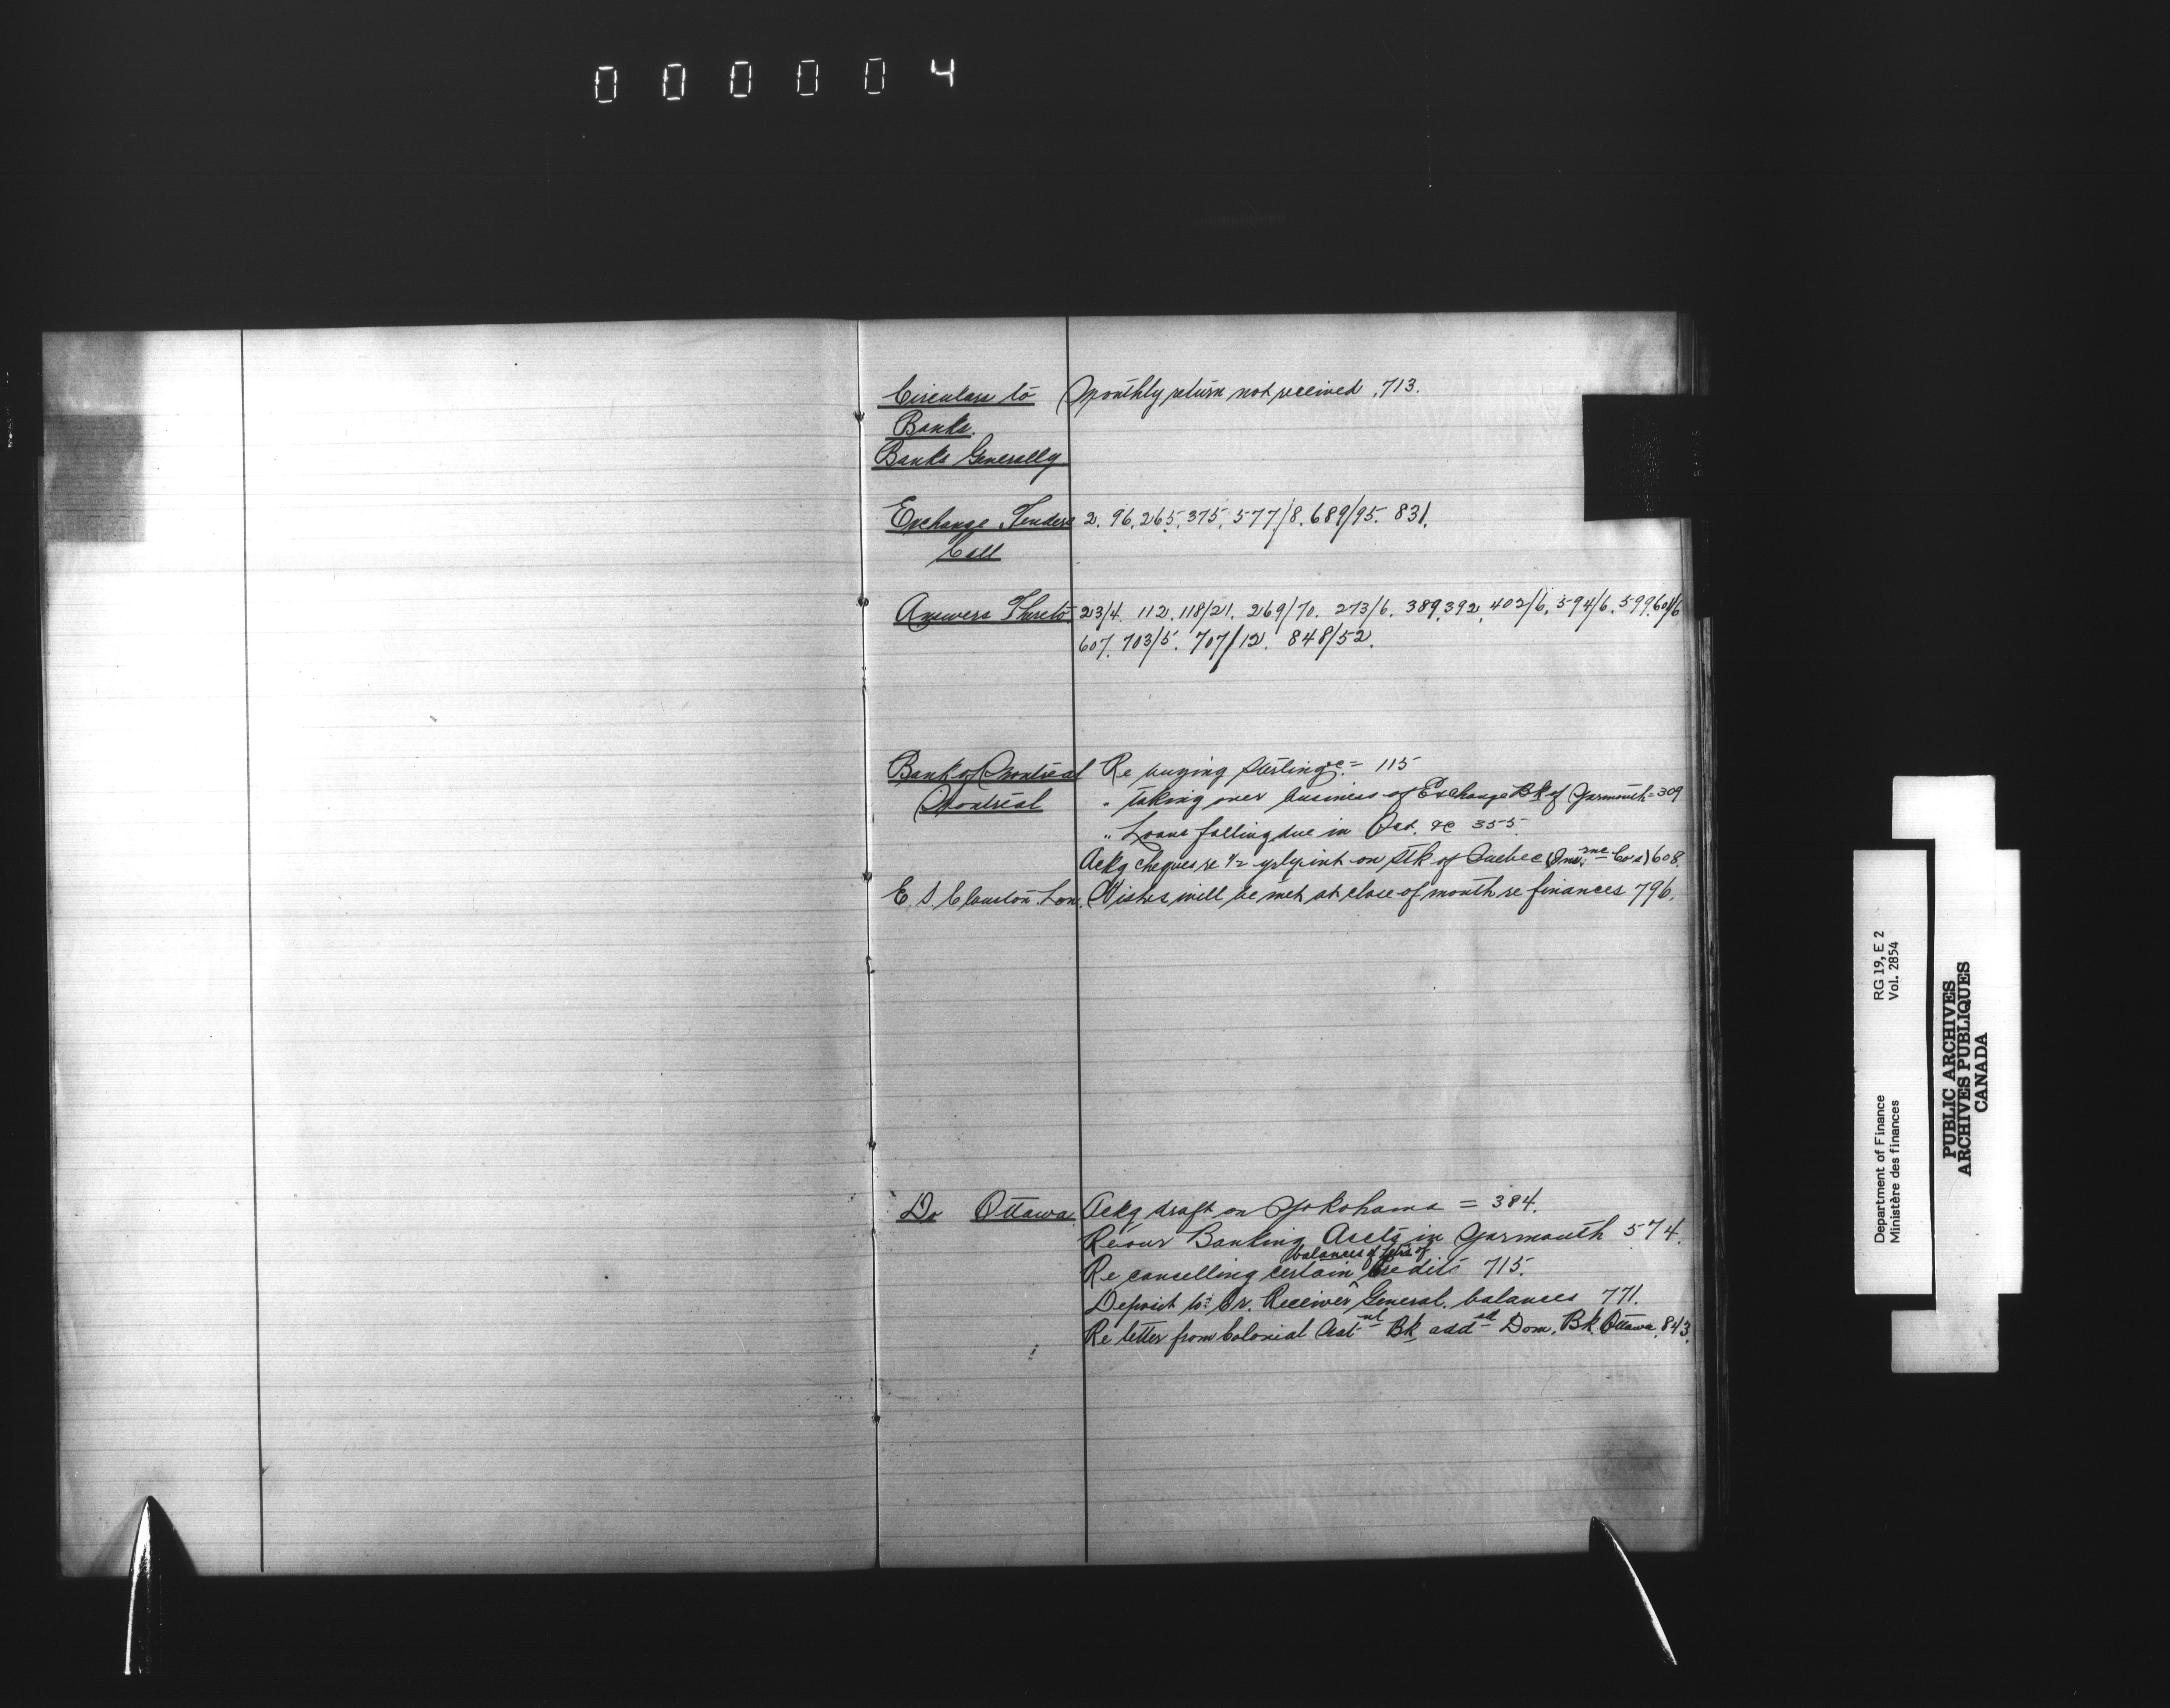 000004
Circulars to Monthly return not received .713.
Banks.
Banks Generally
Exchange Tenders 2. 96. 265. 375. 577/8. 689/95. 831.
Call
Answers Thereto 23/4. 112. 118/21. 269/70. 273/6. 389. 392. 402/6. 594/6. 599. 601/6
607. 703/5. 707/12. 848/52.
Bank of Montreal Re buying Sterling &c = 115
Montreal " taking over business of Exchange Bk of Yarmouth = 309
" Loans falling due in Oct. &c 355.
Ackg cheques re 1/2 yrly int on Stk of Quebec (Insnce Co's) 608.
E. S. Clouston. Lon. Wishes will be met at close of month re finances 796.
Do Ottawa Ackg draft on Yokohama = 384.
Re our Banking Accts in Yarmouth 574.
balances of
Re cancelling certain Credits 715.
Deposit to Cr. Receiver General. balances 771.
Re letter from Colonial Bk addd Dom. Bk Ottawa. 843.
Department of Finance RG 19, E 2
Ministère des finances Vol. 2854
PUBLIC ARCHIVES
ARCHIVES PUBLIQUES
CANADA